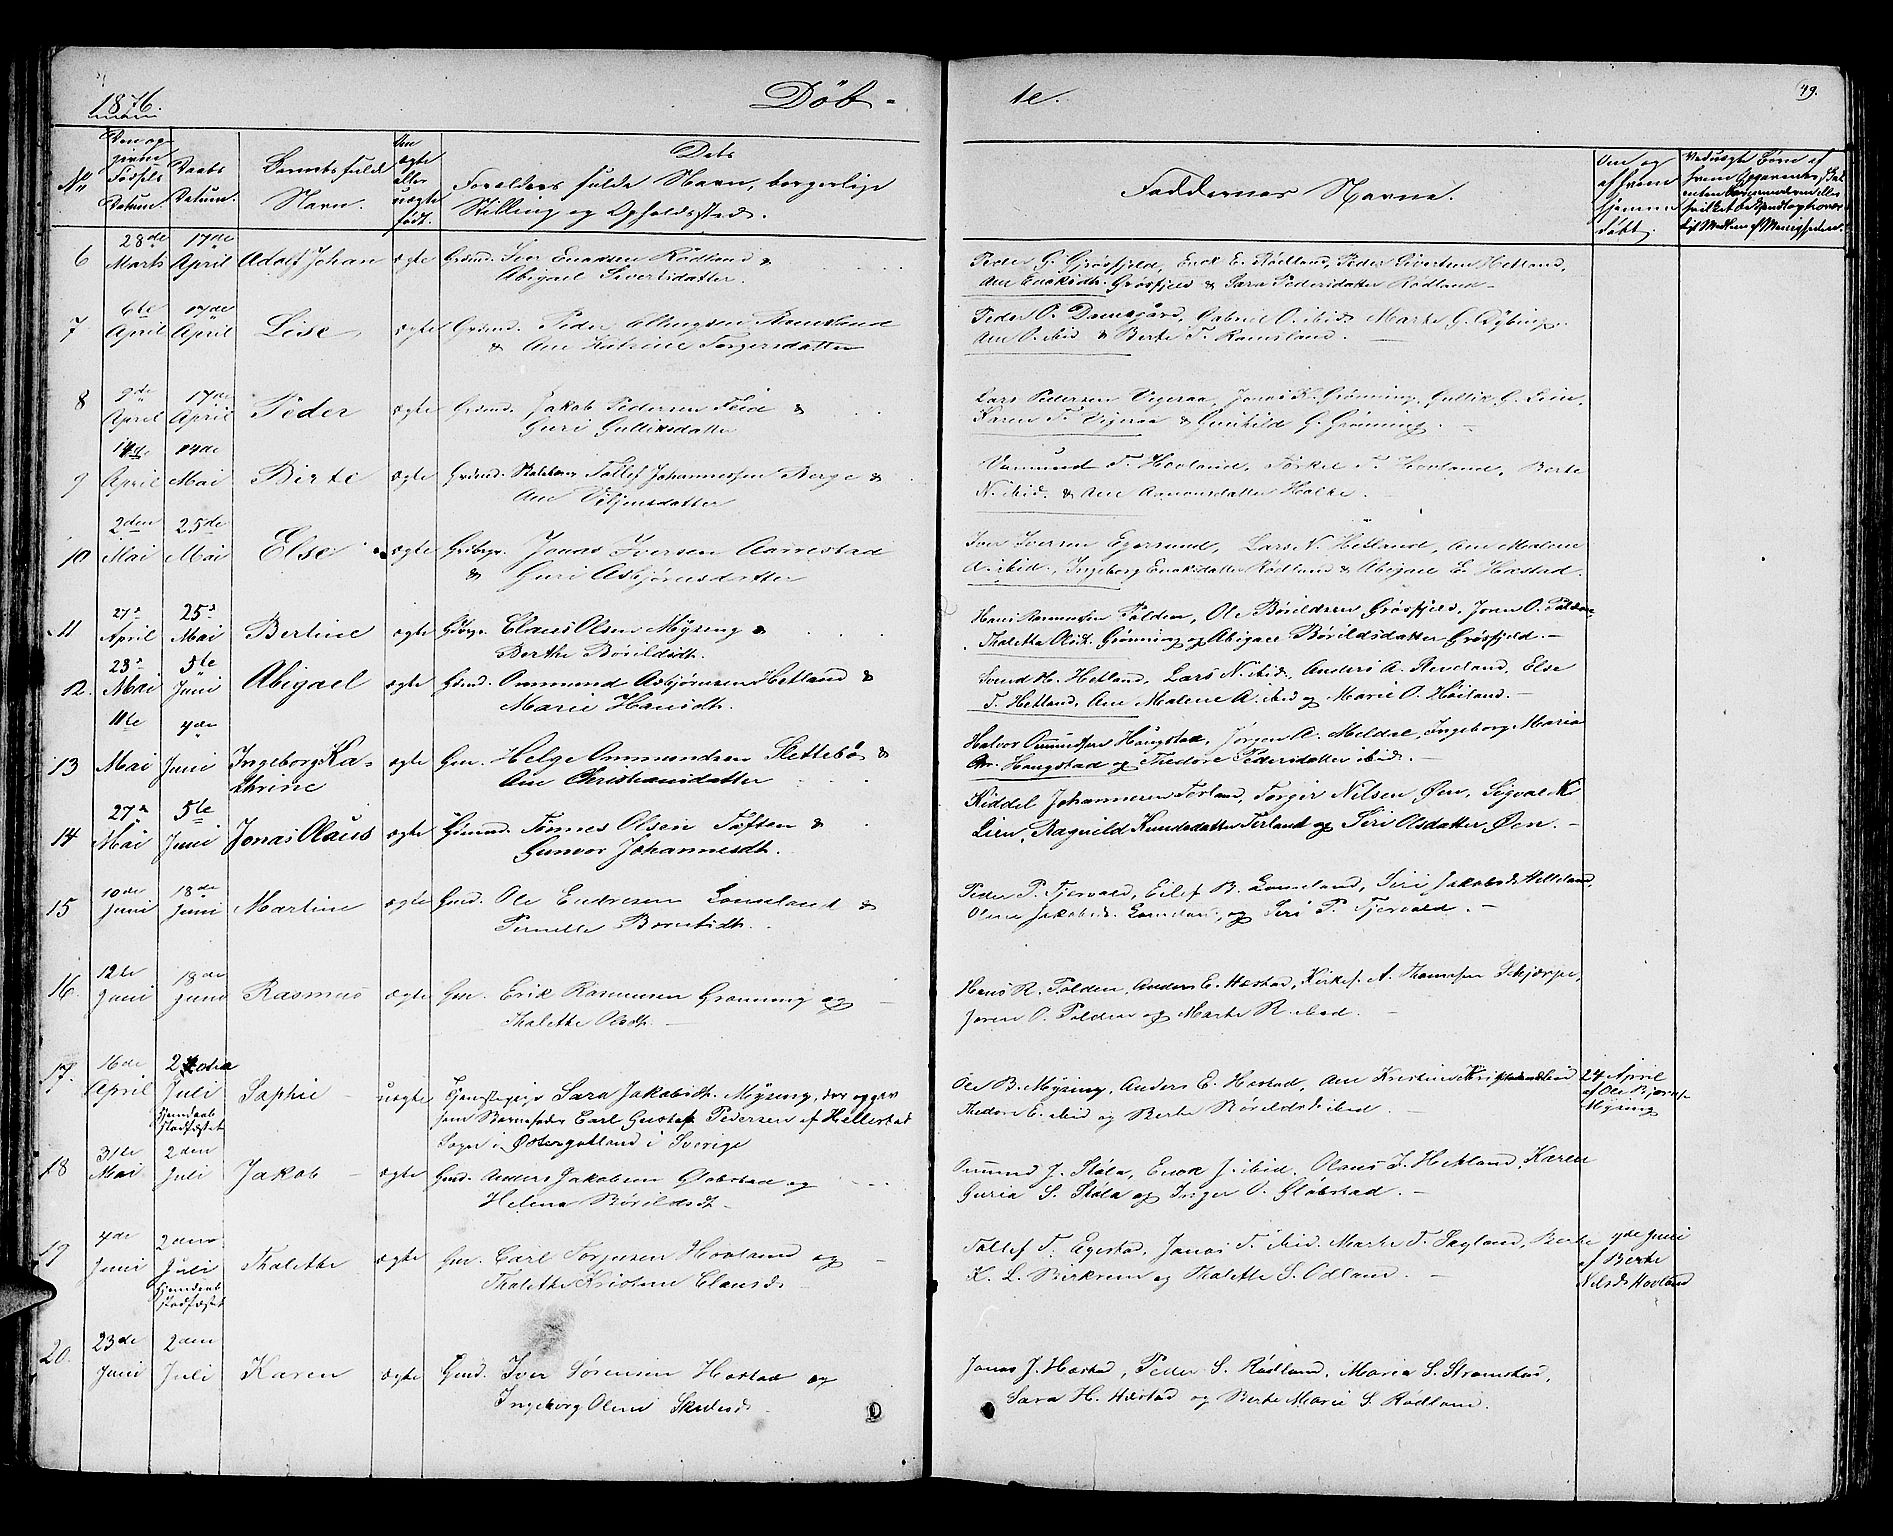 1876.
Döb-
te.
49.
No
Den op-
givne
Fødsels
Datum
Daabs
Datum.
Barnets fulde
Navn.
Om
ægte
eller
uægte
født.
Dets
Forældres fulde Navn, borgerlige
Stilling og Opholdssted.
Faddernes Navne.
Om og
af hvem
hjemme
døbt.
6
28de
Marts
17de
April
Adolf Johan
ægte
Grdmd. Iver Enoksen Rødland &
Abigael Sivertsdatter.
Peder G. Grøsfjeld, Enok E. Rødland, Peder Sivertsen Hetland,
Ane Enoksdtr. Grøsfjeld & Sara Pedersdatter Rødland
7
6te
April
17de
April
Lise
ægte
Grdmd. Peder Ellingsen Ramsland
& Ane Katrine Torgersdatter
Peder O. Damsgård, Gabriel O. ibid, Marte G. Dybing,
Ane O. ibid & Berte T. Ramsland.
8
9de
April
17de
April
Peder
ægte
Grdmd. Jakob Pedersen Feid &
Guri Gulliksdatter
Lars Pedersen Vigeraa, Jonas K. Grønning, Gullik G. Lien,
Karen T. Vigeraa & Gunhild G. Grønning.
9
14de
April
14de
Mai
Birte
ægte
Grdmd. Tallef Johannessen Berge &
Ane Vitjensdatter
T. Hovland, Torkel T. Hovland, Berte
N. ibid. & Ane Aamonsdatter
10
2den
Mai
25de
Mai
Else
ægte
Grdbrgr. Jonas Iversen Aarrestad
& Guri Asbjørnsdatter
Iver Iversen Egersund, Lars N. Hetland, Ane Malene
A. ibid., Ingeborg Enoksdatter Rødland & Abigael E. Hæstad.
11
27s
April
25s
Mai
Bertine
ægte
Gdbgr. Claus Olsen Mysing &
Berthe Bårildsdtr.
Hans Rasmussen Tolden, Ole Bårildsen Grøsfjeld, Joren O. Tolden
Thaletta Olsdt. Grønning og Abigael Bårildsdatter Grøsfjeld.
12.
23s
Mai
5te
Juni
Abigael
ægte
Gdmd. Ommund Asbjørnsen Hetland &
Marie Hansdtr.
Svend H. Hetland, Lars N. ibid, Anders A. Røveland, Else
T. Hetland, Ane Malene A. ibid og Marie O. Høiland.
13
11te
Mai
4de
Juni
Ingeborg Ka-
thrine
ægte
Gm. Helge Ommundsen Slettebø &
Ane Christiansdatter
Halvor Ommundsen Haugstad, Jørgen A. Meldal, Ingeborg Maria
Haugstad og Thedore Pedersdatter ibid.
14
27d
Mai
5te
Juni
Jonas Olaus
ægte
Gdmnd. Tønnes Olsen Tuften &
Gunvor Johannesdt.
Kiddel Johannesen Terland, Torger Nilsen Øen, Sigval K.
Lien, Ragnild Knudsdatter Terland og Siri Olsdatter Øen.
15
10de
Juni
18de
Juni
Martine
ægte
Gmd. Ole Endresen Lomeland &
Pernille Borentsdtr.
Peder P. Tjervald, Eilef B. Lomeland, Siri Jakobsdt. Helleland,
Oline Jakobsdt. Lomeland, og Siri P. Tjervald.
16.
12te
Juni
18de
Juni
Rasmus
ægte
Gm. Erik Rasmussen Grønning og
Thalette Olsdtr.
Hans R. Tolden, Anders E. Hæstad, A. Thomsen Skjærpe,
Joren O. Tolden og Marte R. ibid.
17.
16de
April
2den
Juli
Hjemdaab
stadfæstet
Sophie
uægte
Tjenestepige Sara Jakobsdtr. Mysing, der opgav
som Barnefader Carl Gustaf Pedersen af Hellestad
Sogn i Østergøtland i Sverige
Ole B. Mysing, Anders E. Hæstad, Ane Kristine Kristiansand
Thedore E. ibid og Berte Bårildsdt. ibid.
24 April
af Ole Bjørnsen
Mysing
18
31te
Mai
2den
Juli
Jakob
ægte
Gmd. Anders Jakobsen Gløbstad og
Helena Bårildsdt.
Ommund J. Støla, Enok J. ibid, Olaus I. Hetland, Karen
Guria S. Støla og Inger O. Gløbstad.
19
4de
Juni
2den
Juli
Hjemdaab
stadfæstet
Thalette
ægte
Gm. Carl Torjusen Hovland og
Thalette Kristine Clausd.
Tallef T. Egestad, Jonas T. ibid, Marte T. Sagland, Berte
K. L. Birkrem og Thalette S. Odland.
4de Juni
af Berte
Nilsd. Hovland
20.
23de
Juni
2den
Juli
Karen
ægte
Gmd. Iver Sørensen Hæstad og
Ingeborg Oline
Jonas J. Hæstad, Peder S. Rødland, Maria S. Strømstad,
Sara H. Hæstad og Berte Marie S. Rødland.